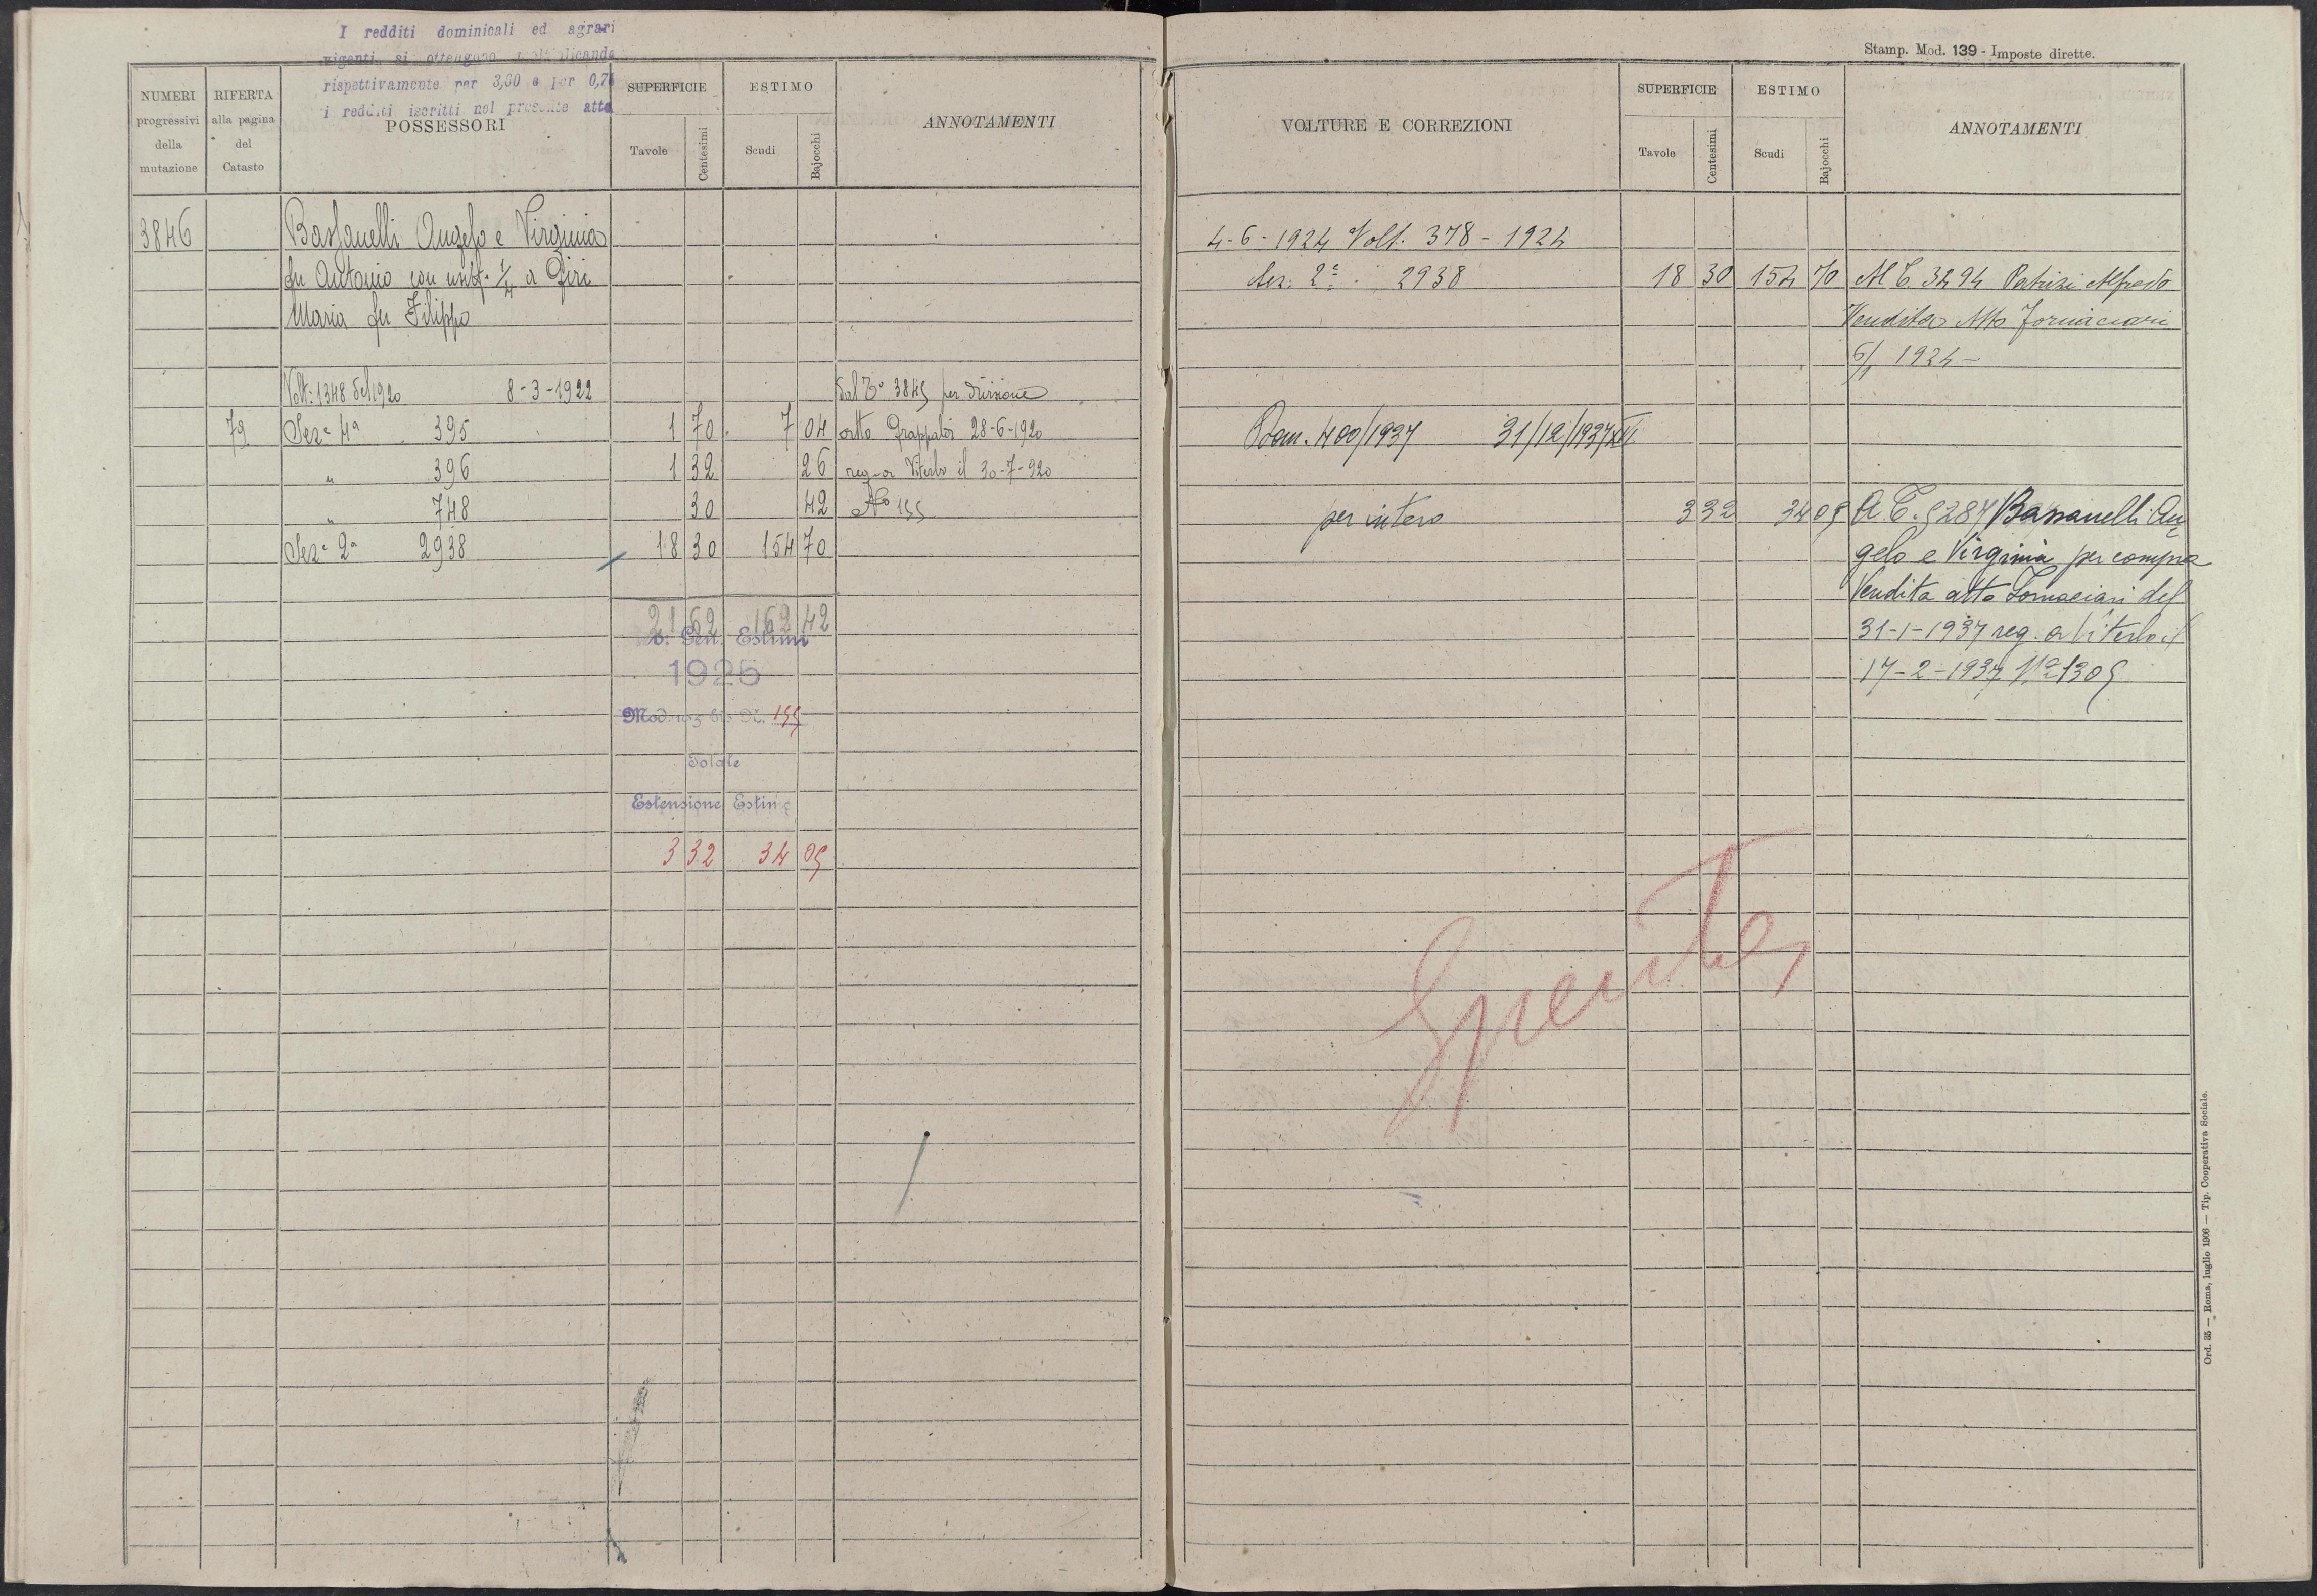 I redditi dominicali ed agrari
vigenti si ottengono moltiplicando
rispettivamente per 3,00 e per 0,75
i redditi iscritti nel presente atto
NUMERI progressivi della mutazione
RIFERTA alla pagina del Catasto
POSSESSORI
SUPERFICIE
Tavole
Centesimi
ESTIMO
Scudi
Bajocchi
ANNOTAMENTI
3846 Bassanelli Angelo e Virginia
fu Antonio con usuf. 1/4 a Piri
Maria fu Filippo
Volt: 1348 del 1920 8-3-1922 Dal T° 3845 per divisione
79 Sez.e 4a 395 1 70 7 04 atto Grappalor 28-6-1920
" 396 1 32 26 reg. a Viterbo il 30-7-920
" 748 30 42 No 155
Sez.e 2a 2938 18 30 154 70
21 62 162 42
Estimi
1925
Mod. 103 bis N. 155
Totale
Estensione Estimo
3 32 34 05
Stamp. Mod. 139 - Imposte dirette.
VOLTURE E CORREZIONI
SUPERFICIE
Tavole
Centesimi
ESTIMO
Scudi
Bajocchi
ANNOTAMENTI
4-6-1924 Volt. 378-1924
Sez: 2e 2938 18 30 154 70 Al T. 3494 Patrizi Alfredo
Vendita Atto Fornaciari
5/1 1924 -
Dom. 400/1937 31/12/1937 XVI
per intero 3 32 34 05 A T. 5287 Bassanelli An
gelo e Virginia per compra
Vendita atto Fornaciari del
31-1-1937 reg. a Viterbo il
17-2-1937 No 1305
Spenta
Ord. 85 — Roma, luglio 1906 — Tip. Cooperativa Sociale.